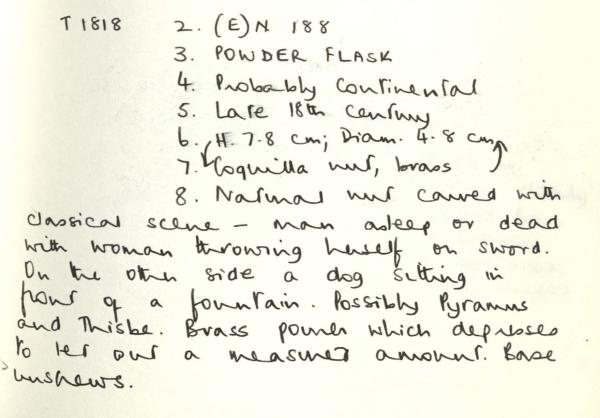 T 1818 2. (E)N 188
3. POWDER FLASK
4. Probably Continental
5. Late 18th Century
6. H. 7.8 cm; Diam. 4.8 cm
7. Coquilla nut, brass
8. Natural nut carved with
classical scene – man asleep or dead
with woman throwing herself on sword.
On the other side a dog sitting in
front of a fountain. Possibly Pyramus
and Thisbe. Brass pourer which depresses
to let out a measured amount. Base
unscrews.